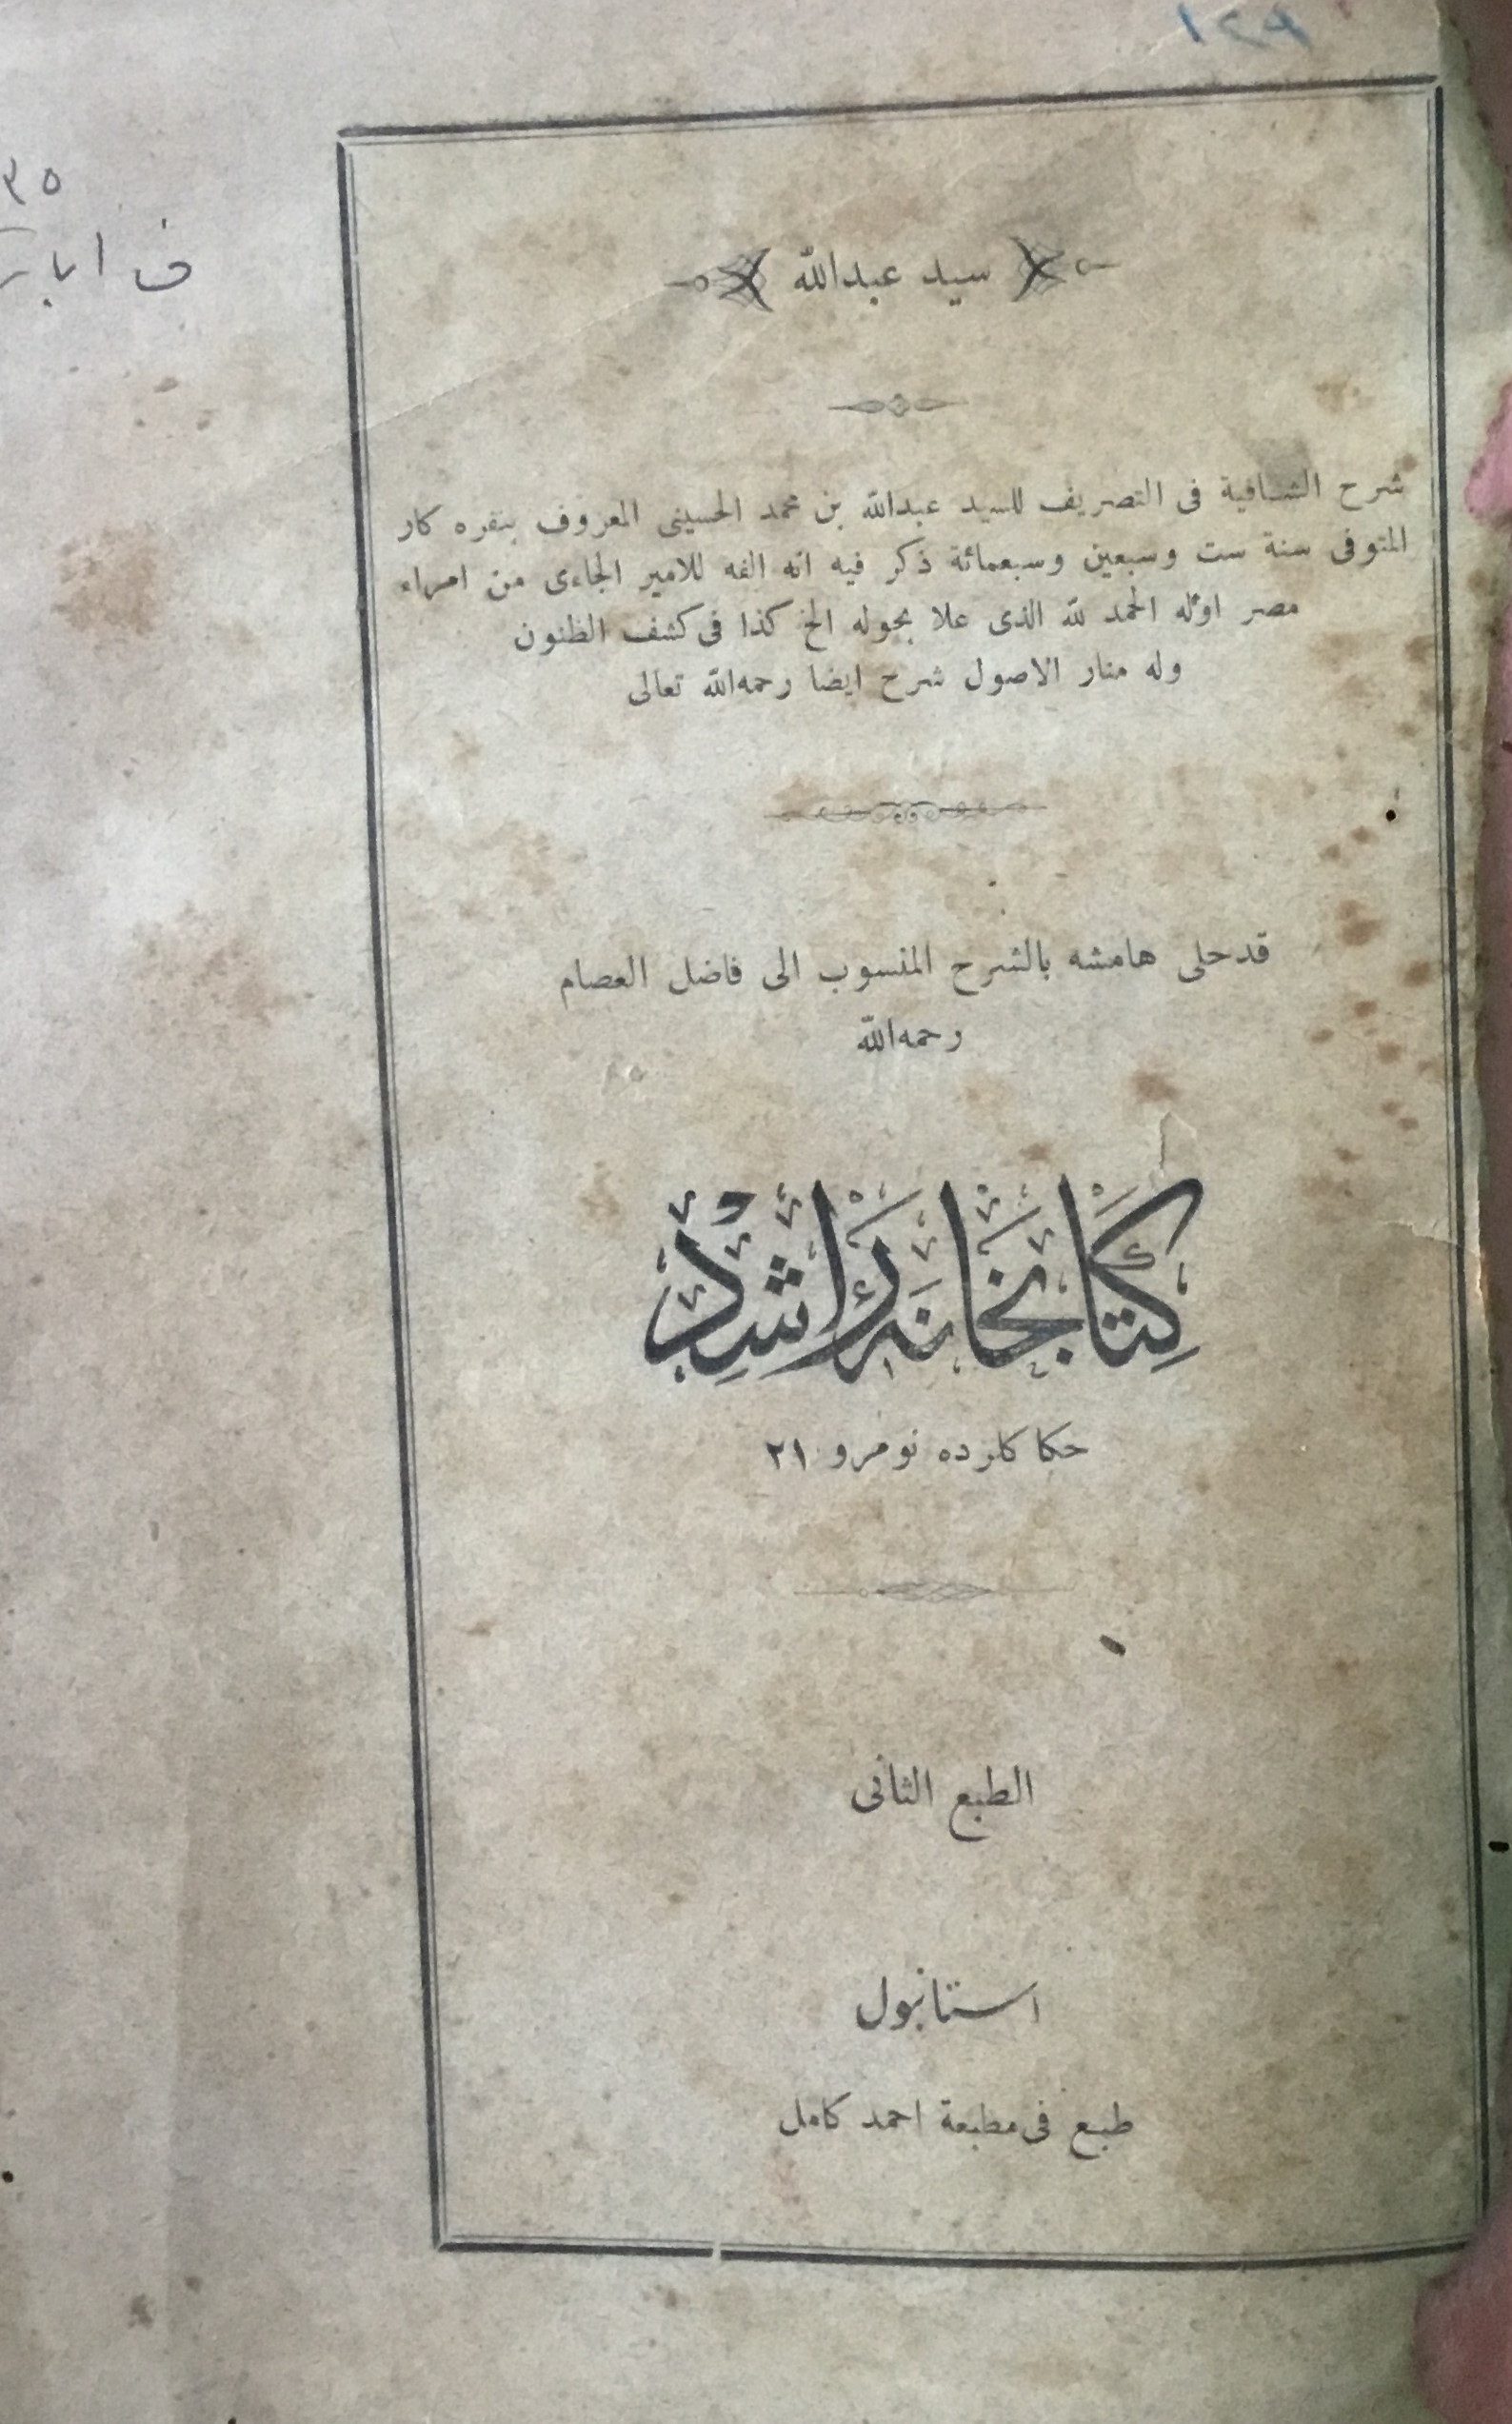 سيد عبدالله
شرح الشافية فى التصريف للسيد عبدالله بن محمد الحسينى المعروف بنقره كار
المتوفى سنة ست وسبعين وسبعمائة ذكر فيه انه الفه للامير الجاءى من امراء
مصر اوله الحمد لله الذى علا بحوله الخ كذا فى كشف الظنون
وله منار الاصول شرح ايضا رحمه‌الله تعالى
قد حلى هامشه بالشرح المنسوب الى فاضل العصام
رحمه‌الله
كِتَابخَانَه رَاشِدْ
حكا كلرده نومرو ٢١
الطبع الثانى
استانبول
طبع فى مطبعة احمد كامل